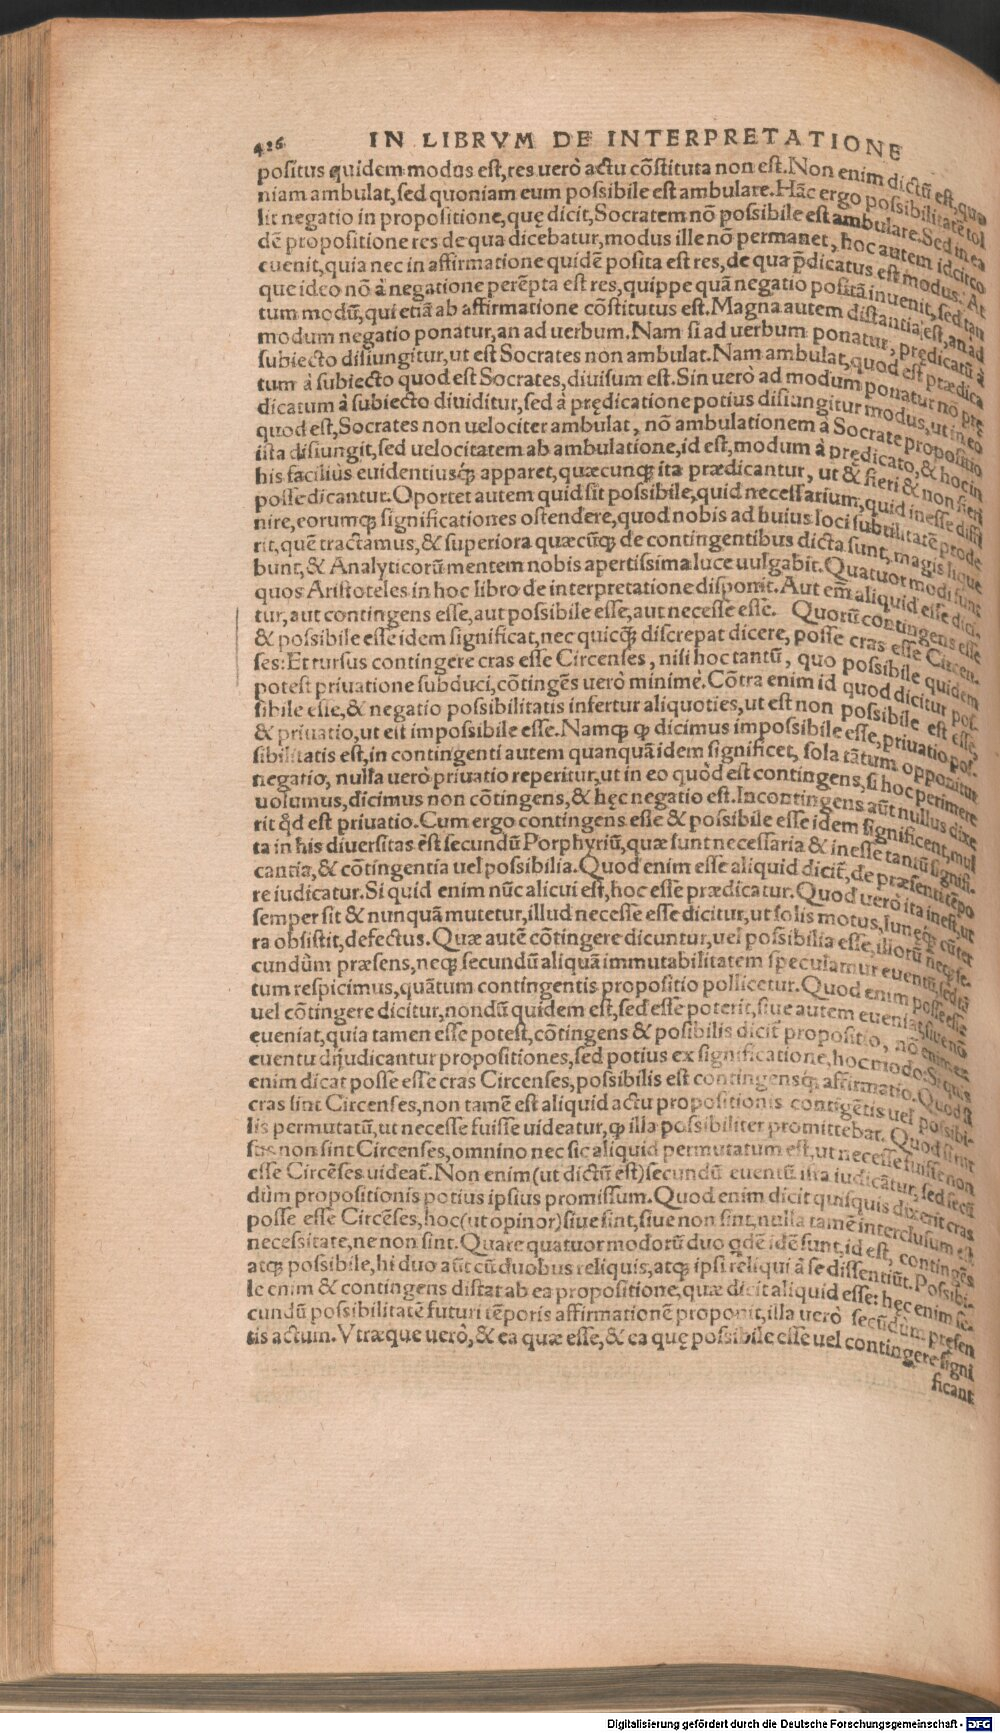 426 IN LIBRVM DE INTERPRETATIONE
positus quidem modus est, res uerò actu cõstituta non est. Non enim dictũ est, quo
niam ambulat, sed quoniam eum possibile est ambulare. Hãc ergo possibilitatẽ tol
lit negatio in propositione, quę dicit, Socratem nõ possibile est ambulare. Sed in ea
dẽ propositione res de qua dicebatur, modus ille nõ permanet, hoc autem idcirco
euenit, quia nec in affirmatione quidẽ posita est res, de qua p̃dicatus est modus. At
que ideo nõ à negatione perẽpta est res, quippe quã negatio positã inuenit, sed tan
tum modũ, qui etiã ab affirmatione cõstitutus est. Magna autem distantia est, an ad
modum negatio ponatur, an ad uerbum. Nam si ad uerbum ponatur, prędicatũ à
subiecto disiungitur, ut est Socrates non ambulat. Nam ambulat, quod est prædica
tum à subiecto quod est Socrates, diuisum est. Sin uerò ad modum ponatur nõ prę
dicatum à subiecto diuiditur, sed à prędicatione potius disiungitur modus, ut in eo
quod est, Socrates non uelociter ambulat, nõ ambulationem à Socrate propositio
ista disiungit, sed uelocitatem ab ambulatione, id est, modum à prędicato, & hoc in
his facilius euidentiusq́; apparet, quæcunq; ita prædicantur, ut & fieri & non fieri
posse dicantur. Oportet autem quid sit possibile, quid necessarium, quid inesse diffi
nire, eorumq; significationes ostendere, quod nobis ad huius loci subtilitatẽ prode
rit, quẽ tractamus, & superiora quæcũq; de contingentibus dicta sunt, magis lique
bunt, & Analyticorũ mentem nobis apertissima luce uulgabit. Quatuor modi sunt
quos Aristoteles in hoc libro de interpretatione disponit. Aut em̃ aliquid esse dici-
tur, aut contingens esse, aut possibile esse, aut necesse esse. Quorũ contingens esse
& possibile esse idem significat, nec quicq̃; discrepat dicere, posse cras esse Circen-
ses: Et rursus contingere cras esse Circenses, nisi hoc tantũ, quo possibile quidem
potest priuatione subduci, cõtingẽs uerò minime. Cõtra enim id quod dicitur pos-
sibile esse, & negatio possibilitatis infertur aliquoties, ut est non possibile est esse,
& priuatio, ut est impossibile esse. Namq; ꝙ dicimus impossibile esse, priuatio pos-
sibilitatis est, in contingenti autem quanquã idem significet, sola tãtum opponitur
negatio, nulla uerò priuatio reperitur, ut in eo quòd est contingens, si hoc perimere
uolumus, dicimus non cõtingens, & hęc negatio est. Incontingens aũt nullus dixe
rit q̃d est priuatio. Cum ergo contingens esse & possibile esse idem significent, mul
ta in his diuersitas est secundũ Porphyriũ, quæ sunt necessaria & inesse tantũ signifi-
cantia, & cõtingentia uel possibilia. Quod enim esse aliquid dicit̃, de præsenti tẽpo
re iudicatur. Si quid enim nũc alicui est, hoc esse prædicatur. Quod uerò ita inest, ut
semper sit & nunquã mutetur, illud necesse esse dicitur, ut solis motus, lunęq; cũ ter
ra obsistit, defectus. Quæ autẽ cõtingere dicuntur, uel possibilia esse, illorũ neq; se-
cundùm præsens, neq; secundũ aliquã immutabilitatem speculamur euentũ, sed tã
tum respicimus, quãtum contingentis propositio pollicetur. Quod enim posse esse
uel cõtingere dicitur, nondũ quidem est, sed esse poterit, siue autem eueniat, siue nõ
eueniat, quia tamen esse potest, cõtingens & posibilis dicit̃ propositio, nõ enim ex
euentu dijudicantur propositiones, sed potius ex significatione, hoc modo: Si quis
enim dicat posse esse cras Circenses, possibilis est contingensq́; affirmatio. Quod si
cras sint Circenses, non tamẽ est aliquid actu propositionis contigẽtis uel possibi-
lis permutatũ, ut necesse fuisse uideatur, ꝙ illa possibiliter promittebat. Quod si rur
sus non sint Circenses, omnino nec sic aliquid permutatum est, ut necesse fuisse non
esse Circẽses uideat̃. Non enim (ut dictũ est) secundũ euentũ ista iudicãtur, sed secũ
dùm propositionis potius ipsius promissum. Quod enim dicit quisquis dixerit cras
posse esse Circẽses, hoc (ut opinor) siue sint, siue non sint, nulla tamẽ interclusum est
necessitate, ne non sint. Quare quatuor modorũ duo q̃dẽ idẽ sunt, id est, contingẽs
atq; possibile, hi duo aũt cũ duobus reliquis, atq; ipsi reliqui à se dissentiũt. Possibi-
le enim & contingens distat ab ea propositione, quæ dicit aliquid esse: hęc enim se-
cundũ possibilitatẽ futuri tẽporis affirmationẽ proponit, illa uerò secũdùm pręsen
tis actum. Vtræque uerò, & ea quæ esse, & ea quę possibile esse uel contingere signi
ficant
Digitalisierung gefördert durch die Deutsche Forschungsgemeinschaft - DFG